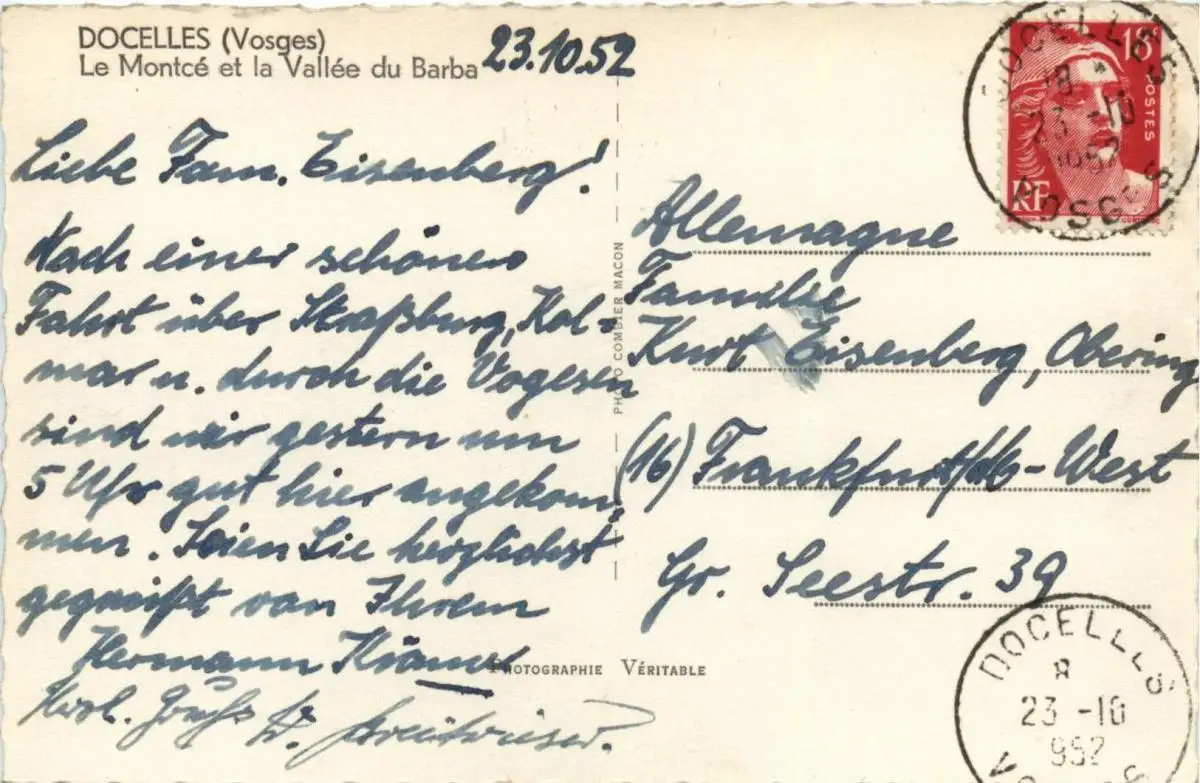 DOCELLES (Vosges)
Le Montcé et la Vallée du Barba
23.10.52
Liebe Fam. Eisenberg!
Nach einer schönen
Fahrt über Straßburg, Kol-
mar u. durch die Vogesen
sind wir gestern um
5 Uhr gut hier angekom-
men. Seien Sie herzlichst
gegrüßt von Ihrem
Hermann Krämer
Herzl. Grüße
PHOTO COMBIER MACON
PHOTOGRAPHIE VÉRITABLE
Allemagne
Familie
Kurt Eisenberg, Obering
(16) Frankfurt/M-West
Gr. Seestr. 39
15F
POSTES
RF
DOCELLES
18 *
23 -10
1952
VOSGES
DOCELLES
23 -10
952